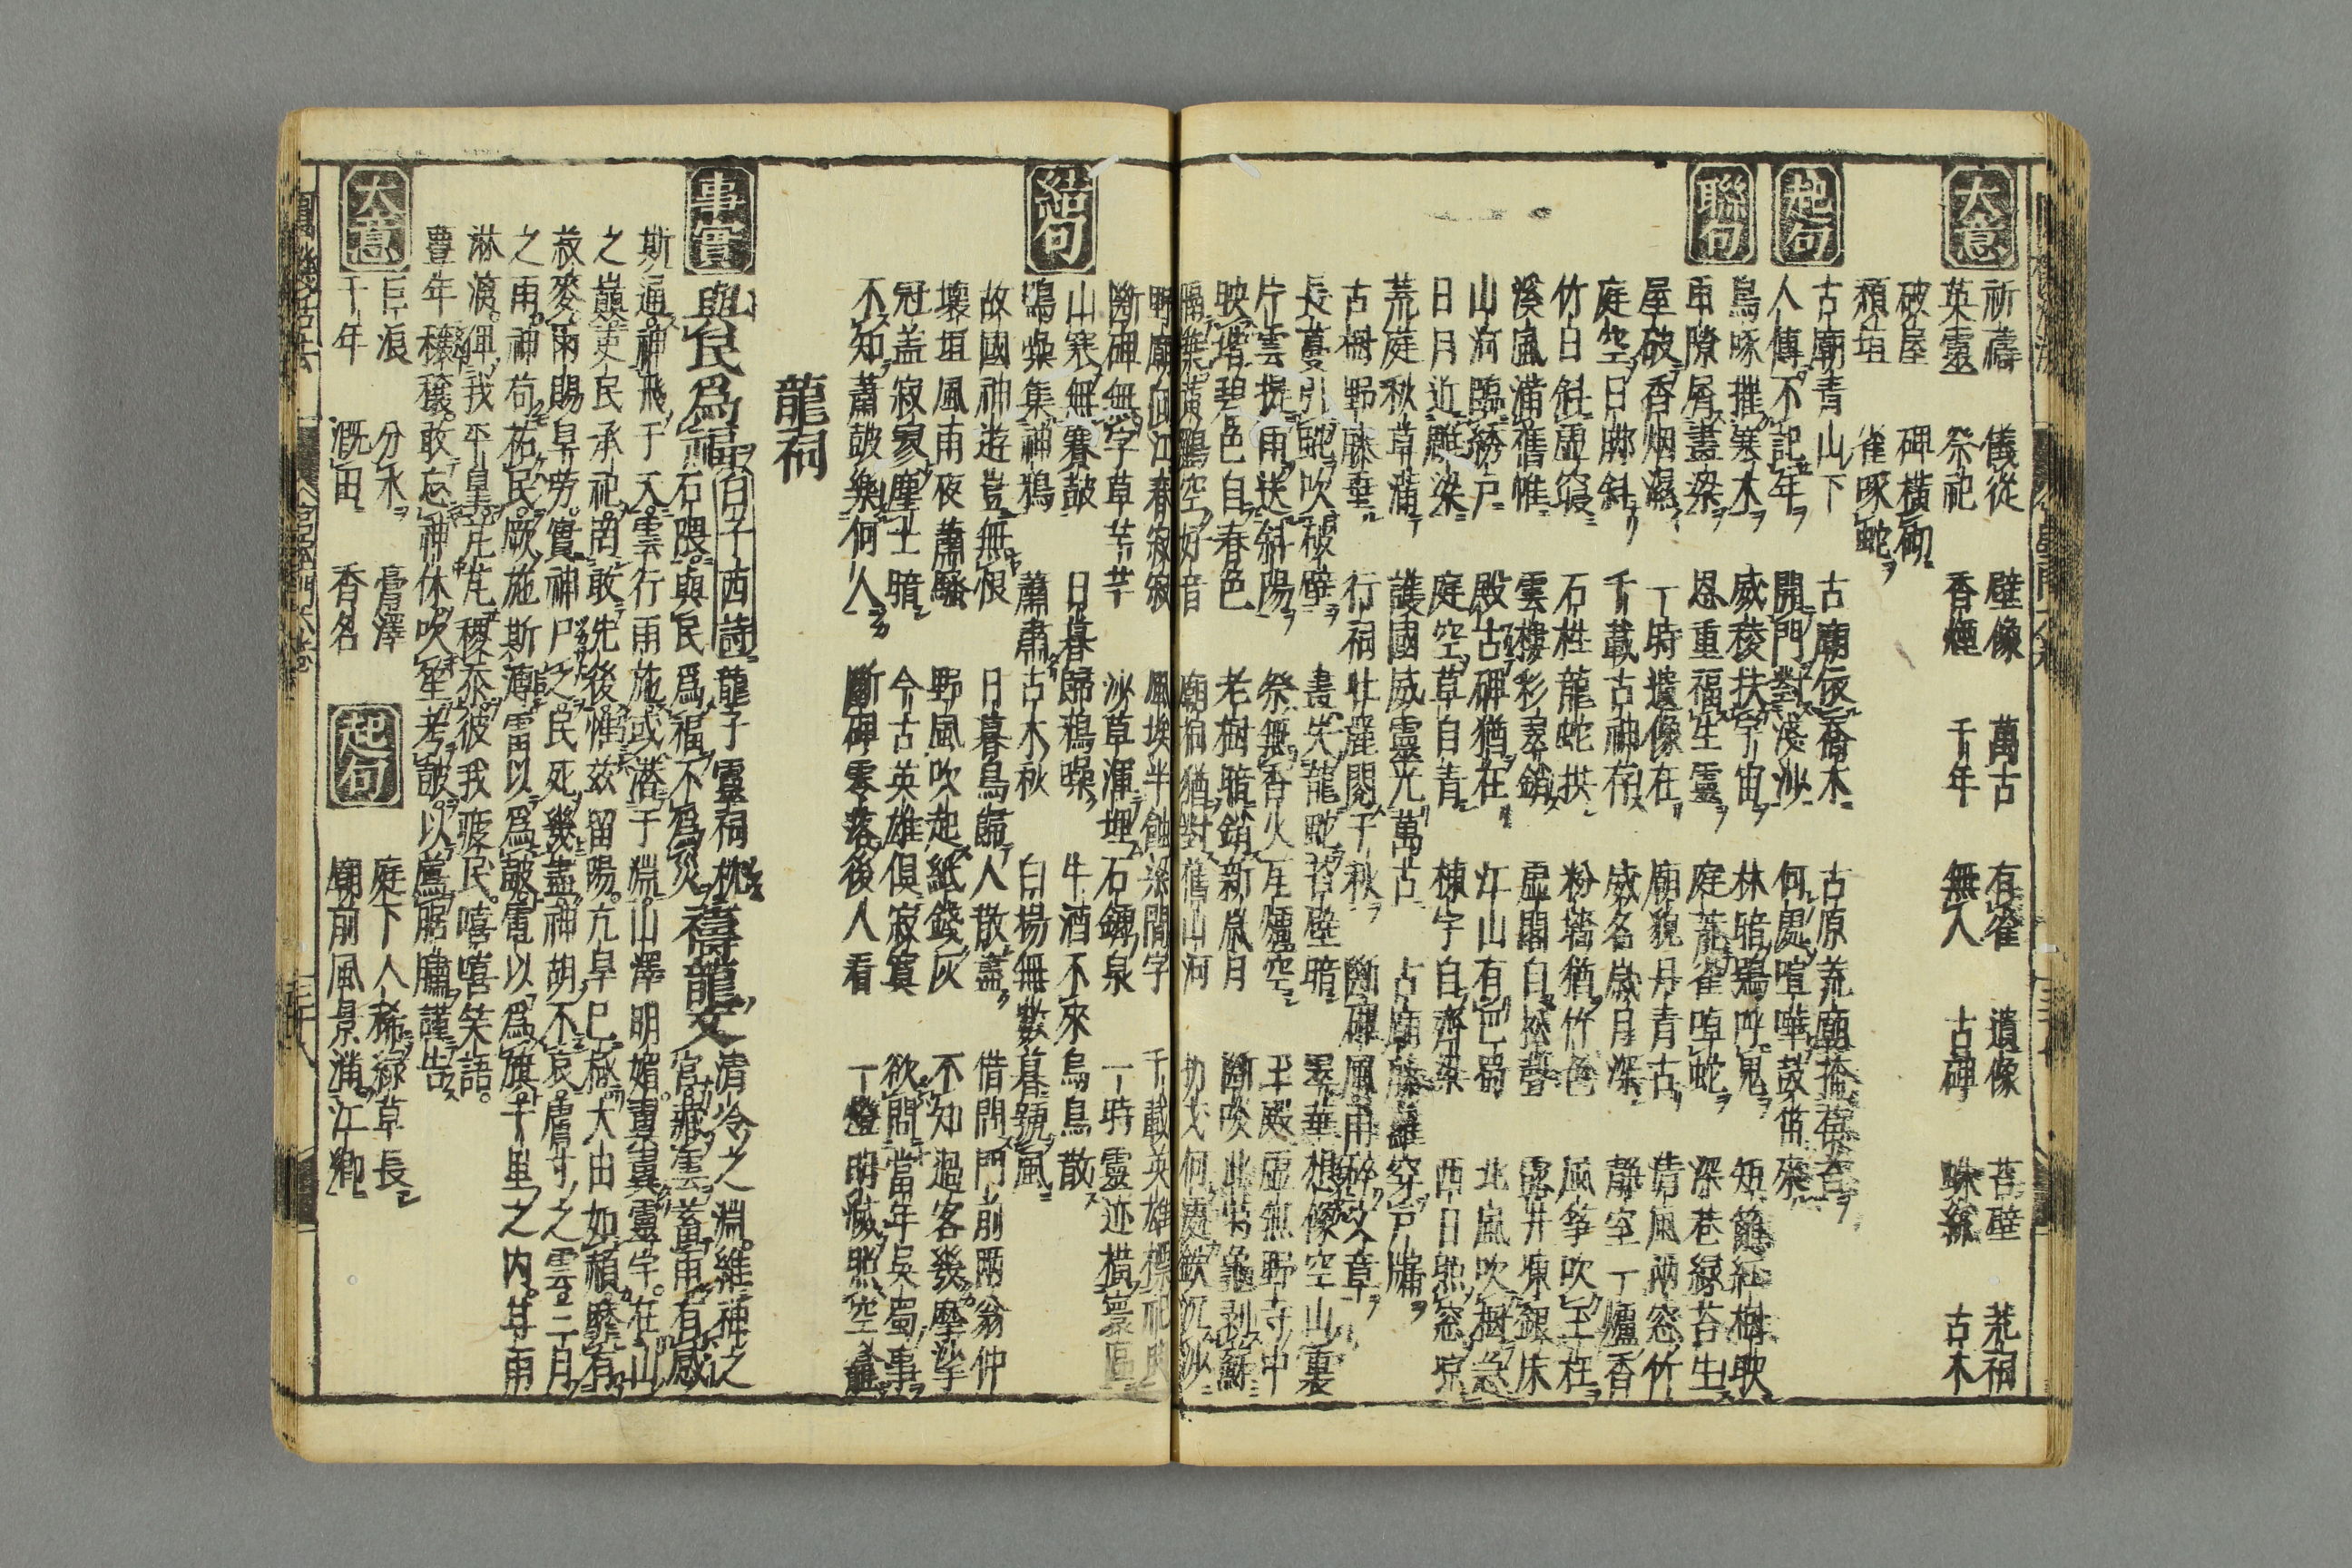 大意
祈禱 儀從 壁像 萬古 有雀 遺像 苔壁 荒祠
英靈 祭祀 香煙 千年 無人 古碑 蛛絲 古木
破屋 碑橫砌
頹垣 雀啄蛇
起句
古廟青山下 古廟依喬木 古原荒廟
人傳不記年 開門對淺沙 何處喧嘩鼓笛來
聯句
鳥啄摧寒木 威稜扶宇宙 林暗鴉呼鬼 短籬紅樹映
雨隙屑畫梁 恩重福生靈 庭荒雀啅蛇 深巷綠苔生
屋破香烟濕 一時遺像在 廟貌丹青古 清風兩窓竹
庭空日腳斜 千載古神存 威名歲月深 靜室一爐香
竹白斜虛窓 石牲龍蛇拱 粉牆猶竹色 風箏吹玉柱
溪風滿舊帷 雲樓彩翠銷 虛閣自松聲 露井凍銀床
山河臨綉戶 殿古碑猶在 江山有巴蜀 北風吹樹急
日月近雕梁 庭空草自青 棟宇自齊梁 西日照窓凉
荒庭秋草滿 護國威靈光萬古 古廟藤蘿穿戶牖
古樹野藤垂 行祠壯麗閱千秋 斷碑風雨碎文章
長蔓引蛇吹破壁 畫失龍蛇苔壁暗 翠華想像空山裏
片雲提雨送斜陽 祭無香火瓦爐空 玉殿虛無野寺中
映堦碧色自春色 老樹暗銷新歲月 斷
隔葉黃鸝空好音 廟栢猶對舊山河
野廟向江春寂寂 風埃半蝕梁間字 千載英雄標祀典
斷碑無字草芊芊 沙草渾埋石鏬泉 一時靈迹橫寰區
結句
山寒無賽鼓 日暮歸鴉噪 牛酒不來烏鳥散
鴉噪集神鴉 蕭肅古木秋 白楊無數暮號風
故國神遊豈無恨 日暮鳥歸人散盡 借問門前兩翁仲
壞垣風雨夜蕭騷 野風吹起紙錢灰 不知過客幾摩挲
冠盖寂寥塵土暗 今古英雄俱寂寞 欲問當年吳蜀事
不知蕭鼓樂何人 斷碑零落後人看 一燈明滅照空龕
龍祠
事實
與民為福 白子西詩龍子靈祠枕
石隈與民為福不為災 禱龍文 清冷之淵維神之
宮藏雲蓄雨有感
斯通神飛于天雲行雨施或潛于淵山澤明媚靈宇在山
之巔吏民承祀罔敢先後惟茲留陽亢旱巳極大田如頳犛有
菽麥雨賜旱勞實神尸之民死幾盡神胡不哀膚寸之雲三月
之雨神苟祐民厥施斯溥雷以為鼓電以為旗千里之内其雨
淋漓俾我平皐芃芃稷黍彼我疲民嘻嘻笑語
豐年穰穰敢忘神休吹笙考鼓以薦腒鱐謹告
大意
巨浪 分水 膏澤
千年 溉田 香名
起句
庭下人稀綠草長
廟前風景滿江鄉